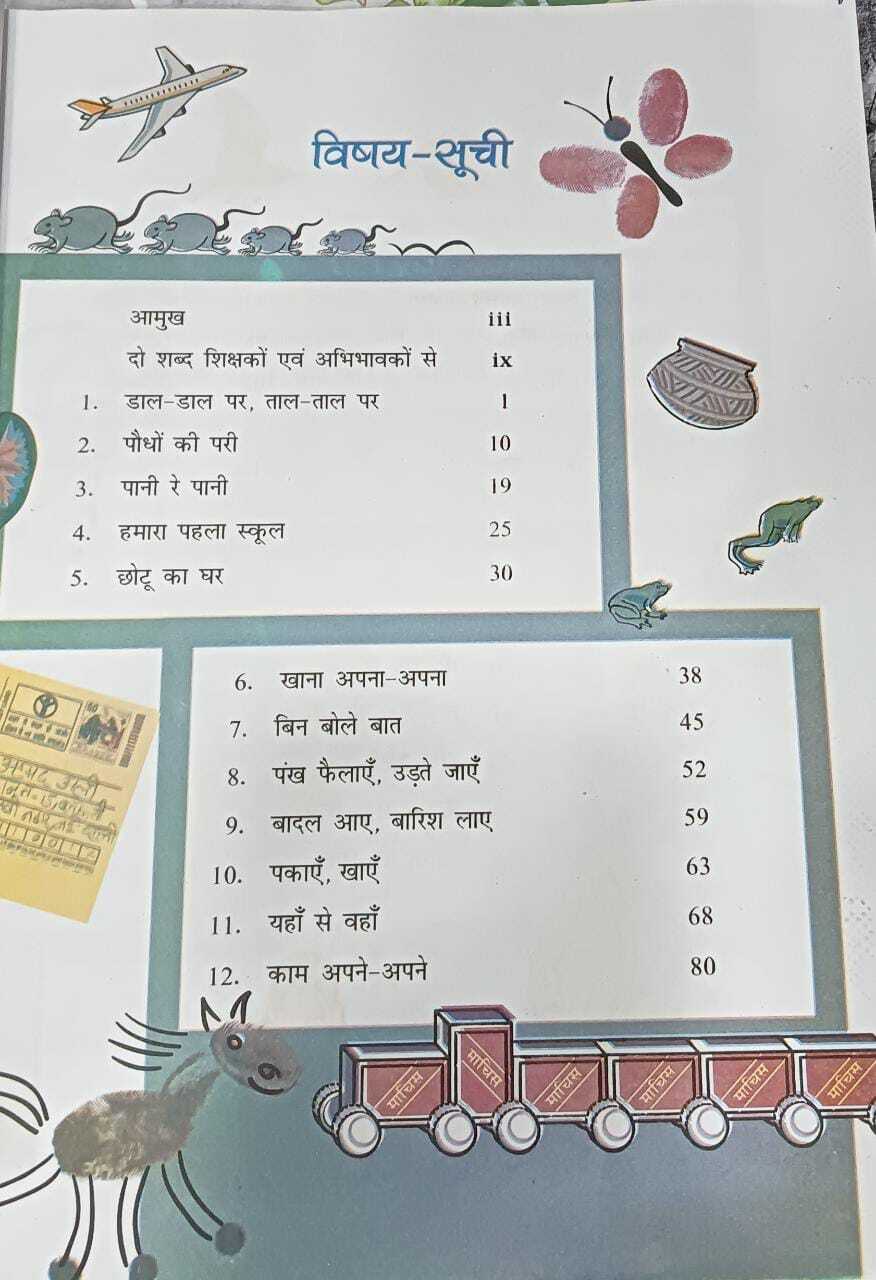 विषय-सूची
आमुख iii
दो शब्द शिक्षकों एवं अभिभावकों से ix
1. डाल-डाल पर, ताल-ताल पर 1
2. पौधों की परी 10
3. पानी रे पानी 19
4. हमारा पहला स्कूल 25
5. छोटू का घर 30
6. खाना अपना-अपना 38
7. बिन बोले बात 45
8. पंख फैलाएँ, उड़ते जाएँ 52
9. बादल आए, बारिश लाए 59
10. पकाएँ, खाएँ 63
11. यहाँ से वहाँ 68
12. काम अपने-अपने 80
माचिस माचिस माचिस माचिस माचिस माचिस